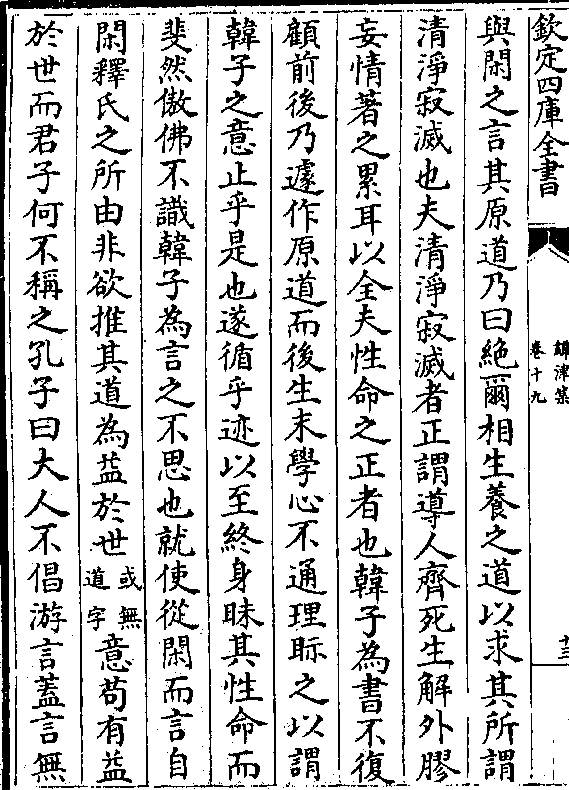 欽定四庫全書
鐔津集
卷十九
十三
與閑之言其原道乃曰絶爾相生養之道以求其所謂
清淨寂滅也夫清淨寂滅者正謂導人齊死生解外膠
妄情著之累耳以全夫性命之正者也韓子為書不復
顧前後乃遽作原道而後生末學心不通理眎之以謂
韓子之意止乎是也遂循乎迹以至終身昧其性命而
斐然傲佛不識韓子為言之不思也就使從閑而言自
閑釋氏之所由非欲推其道為益於世或無道字意苟有益
於世而君子何不稱之孔子曰大人不倡游言蓋言無